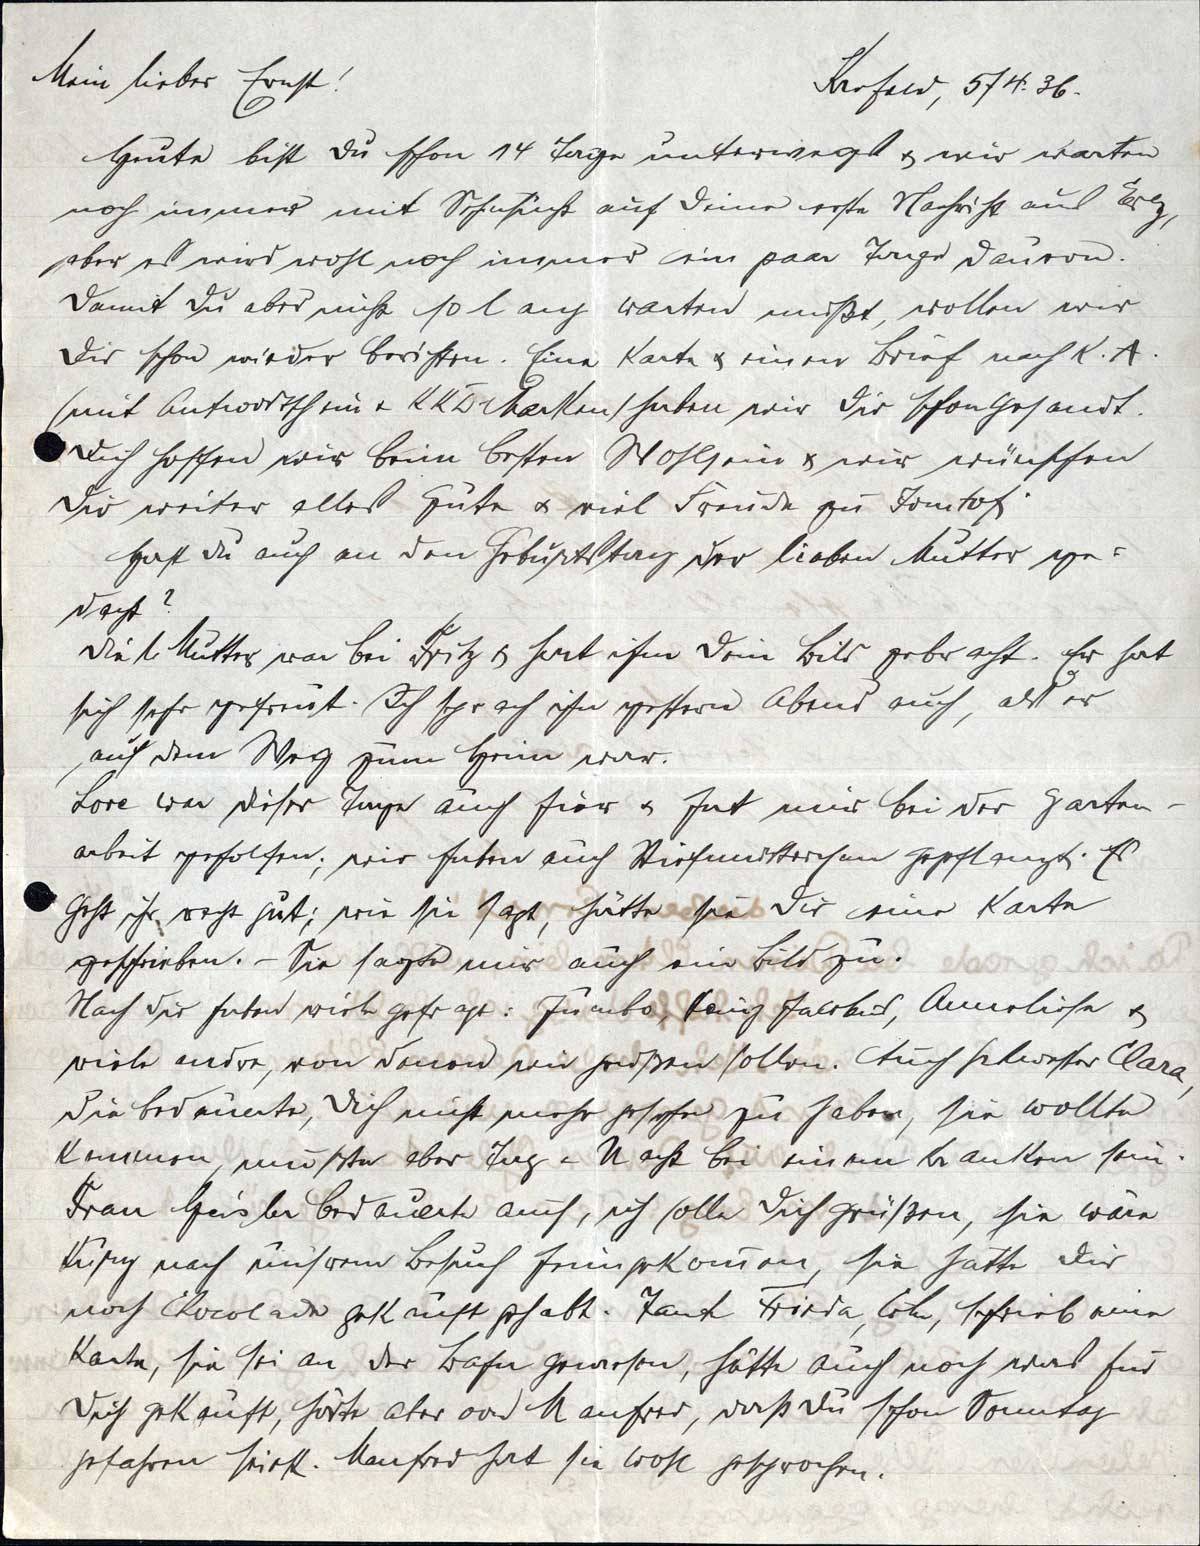 Mein lieber Ernst!
Krefeld, 5/4.36.
Heute bist Du schon 14 Tage unterwegs & wir warten
noch immer mit Sehnsucht auf Deine erste Nachricht aus
aber es wird wohl noch immer ein paar Tage dauern.
Damit Du aber nicht so lang warten mußt, wollen wir
Dir schon wieder berichten. Eine Karte & einen Brief nach K. A.
(mit Antwortschein & Marken) haben wir Dir schon gesandt.
Dich hoffen wir beim besten Wohlsein & wir wünschen
Dir weiter alles Gute & viel Freude zu
Hast Du auch an den Geburtstag der lieben Mutter ge=
dacht?
Die l. Mutter war bei Fritz & hat ihm Dein Bild gebracht. Er hat
sich sehr gefreut. Ich sprach ihn gestern Abend auch, als er
auf dem Weg zum Heim war.
Lore war dieser Tage auch hier & hat mir bei der Garten-
arbeit geholfen; wir haben auch Stiefmütterchen gepflanzt. Es
geht ihr recht gut; wie sie sagt, hätte sie Dir eine Karte
geschrieben. - Sie sagte mir auch ein Bild zu.
Nach Dir haben viele gefragt: Jumbo, Jacobus, Anneliese &
viele andre, von denen wir grüßen sollen. Auch Schwester Clara,
die bedauerte, Dich nicht mehr gesehen zu haben, sie wollte
kommen, mußte aber Tag & Nacht bei einem Kranken sein.
Frau Geisler bedauerte auch, ich solle Dich grüßen, sie wäre
kurz nach unserem Besuch heimgekommen, sie hatte Dir
noch Chocolade gekauft gehabt. Tante Frieda, Cöln, schrieb eine
Karte, sie sei an der Bahn gewesen, hätte auch noch was für
Dich gekauft, hörte aber von Manfred, daß Du schon Sonntag
gefahren seiest. Manfred hat sie wohl gesprochen.